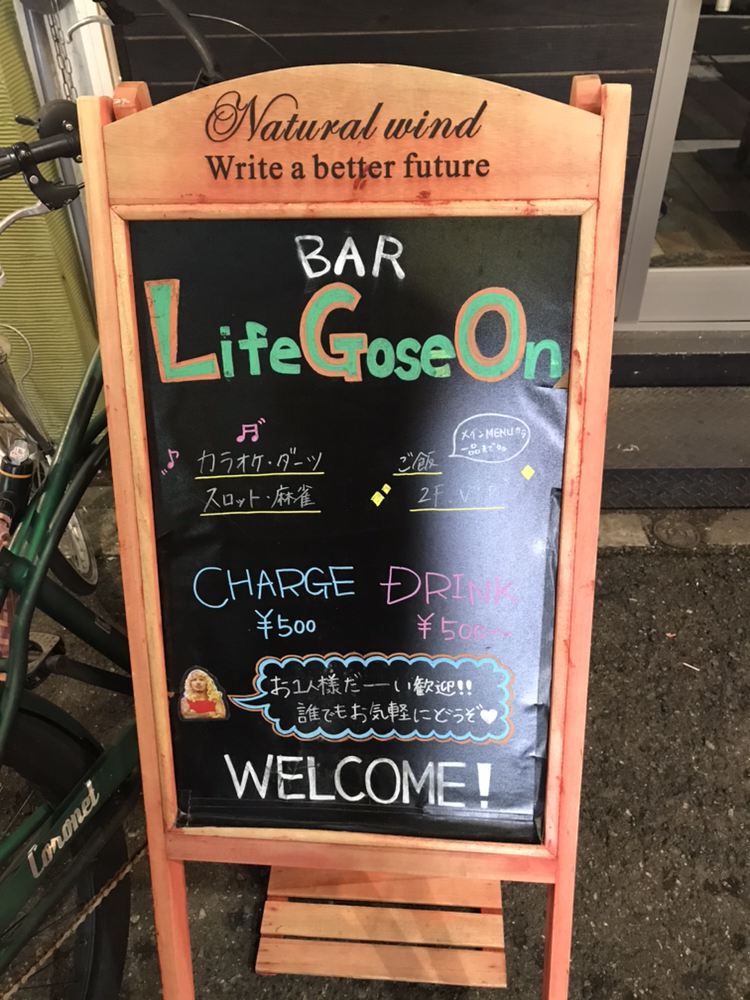 Natural wind
Write a better future
BAR
LifeGoseOn
カラオケ・ダーツ
スロット・麻雀
メインMENUから
一品まで♡♡
ご飯
2F VIP
CHARGE
¥500
DRINK
¥500〜
お1人様だーーい歓迎!!
誰でもお気軽にどうぞ♥
WELCOME!
Coronet